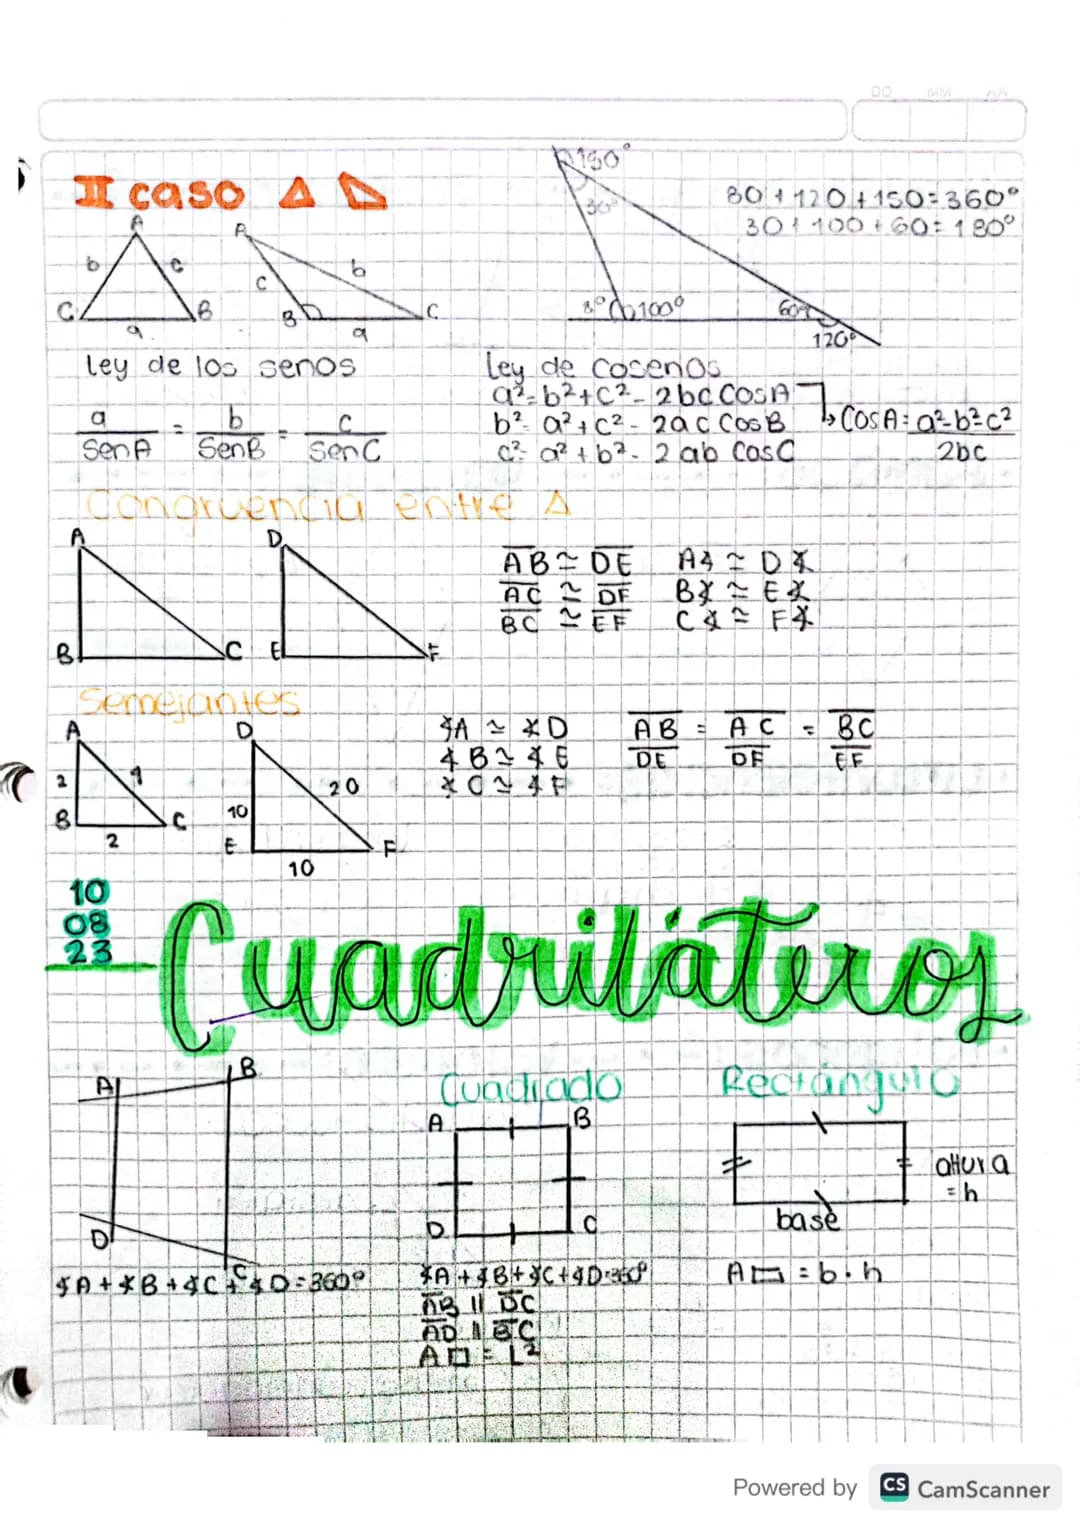 DD MM AA
II caso
A
b c
C B
a
A
c b
B C
a
150°
30°
100°
60°
120°
80+120+150=360°
30+100+60=180°
ley de los senos
a = b = c
SenA SenB SenC
Ley de Cosenos
a²=b²+c²-2bc CosA
b²=a²+c²-2ac CosB
c²=a²+b²-2ab CosC
CosA=a²-b²-c²
2bc
Congruencia entre Δ
A
B C
D
E F
AB ≃ DE
AC ≃ DF
BC ≃ EF
A∡ ≃ D∡
B∡ ≃ E∡
C∡ ≃ F∡
Semejantes
A
2
B C
2
D
20
10
E F
10
∡A ≃ ∡D
∡B ≃ ∡E
∡C ≃ ∡F
AB = AC = BC
DE DF EF
10
08
23
Cuadriláteros
A B
D C
∡A+∡B+∡C+∡D=360°
Cuadrado
A B
D C
∡A+∡B+∡C+∡D=360°
AB || DC
AD || BC
A□ = L²
Rectángulo
altura
=h
base
A▭ = b·h
Powered by CS CamScanner